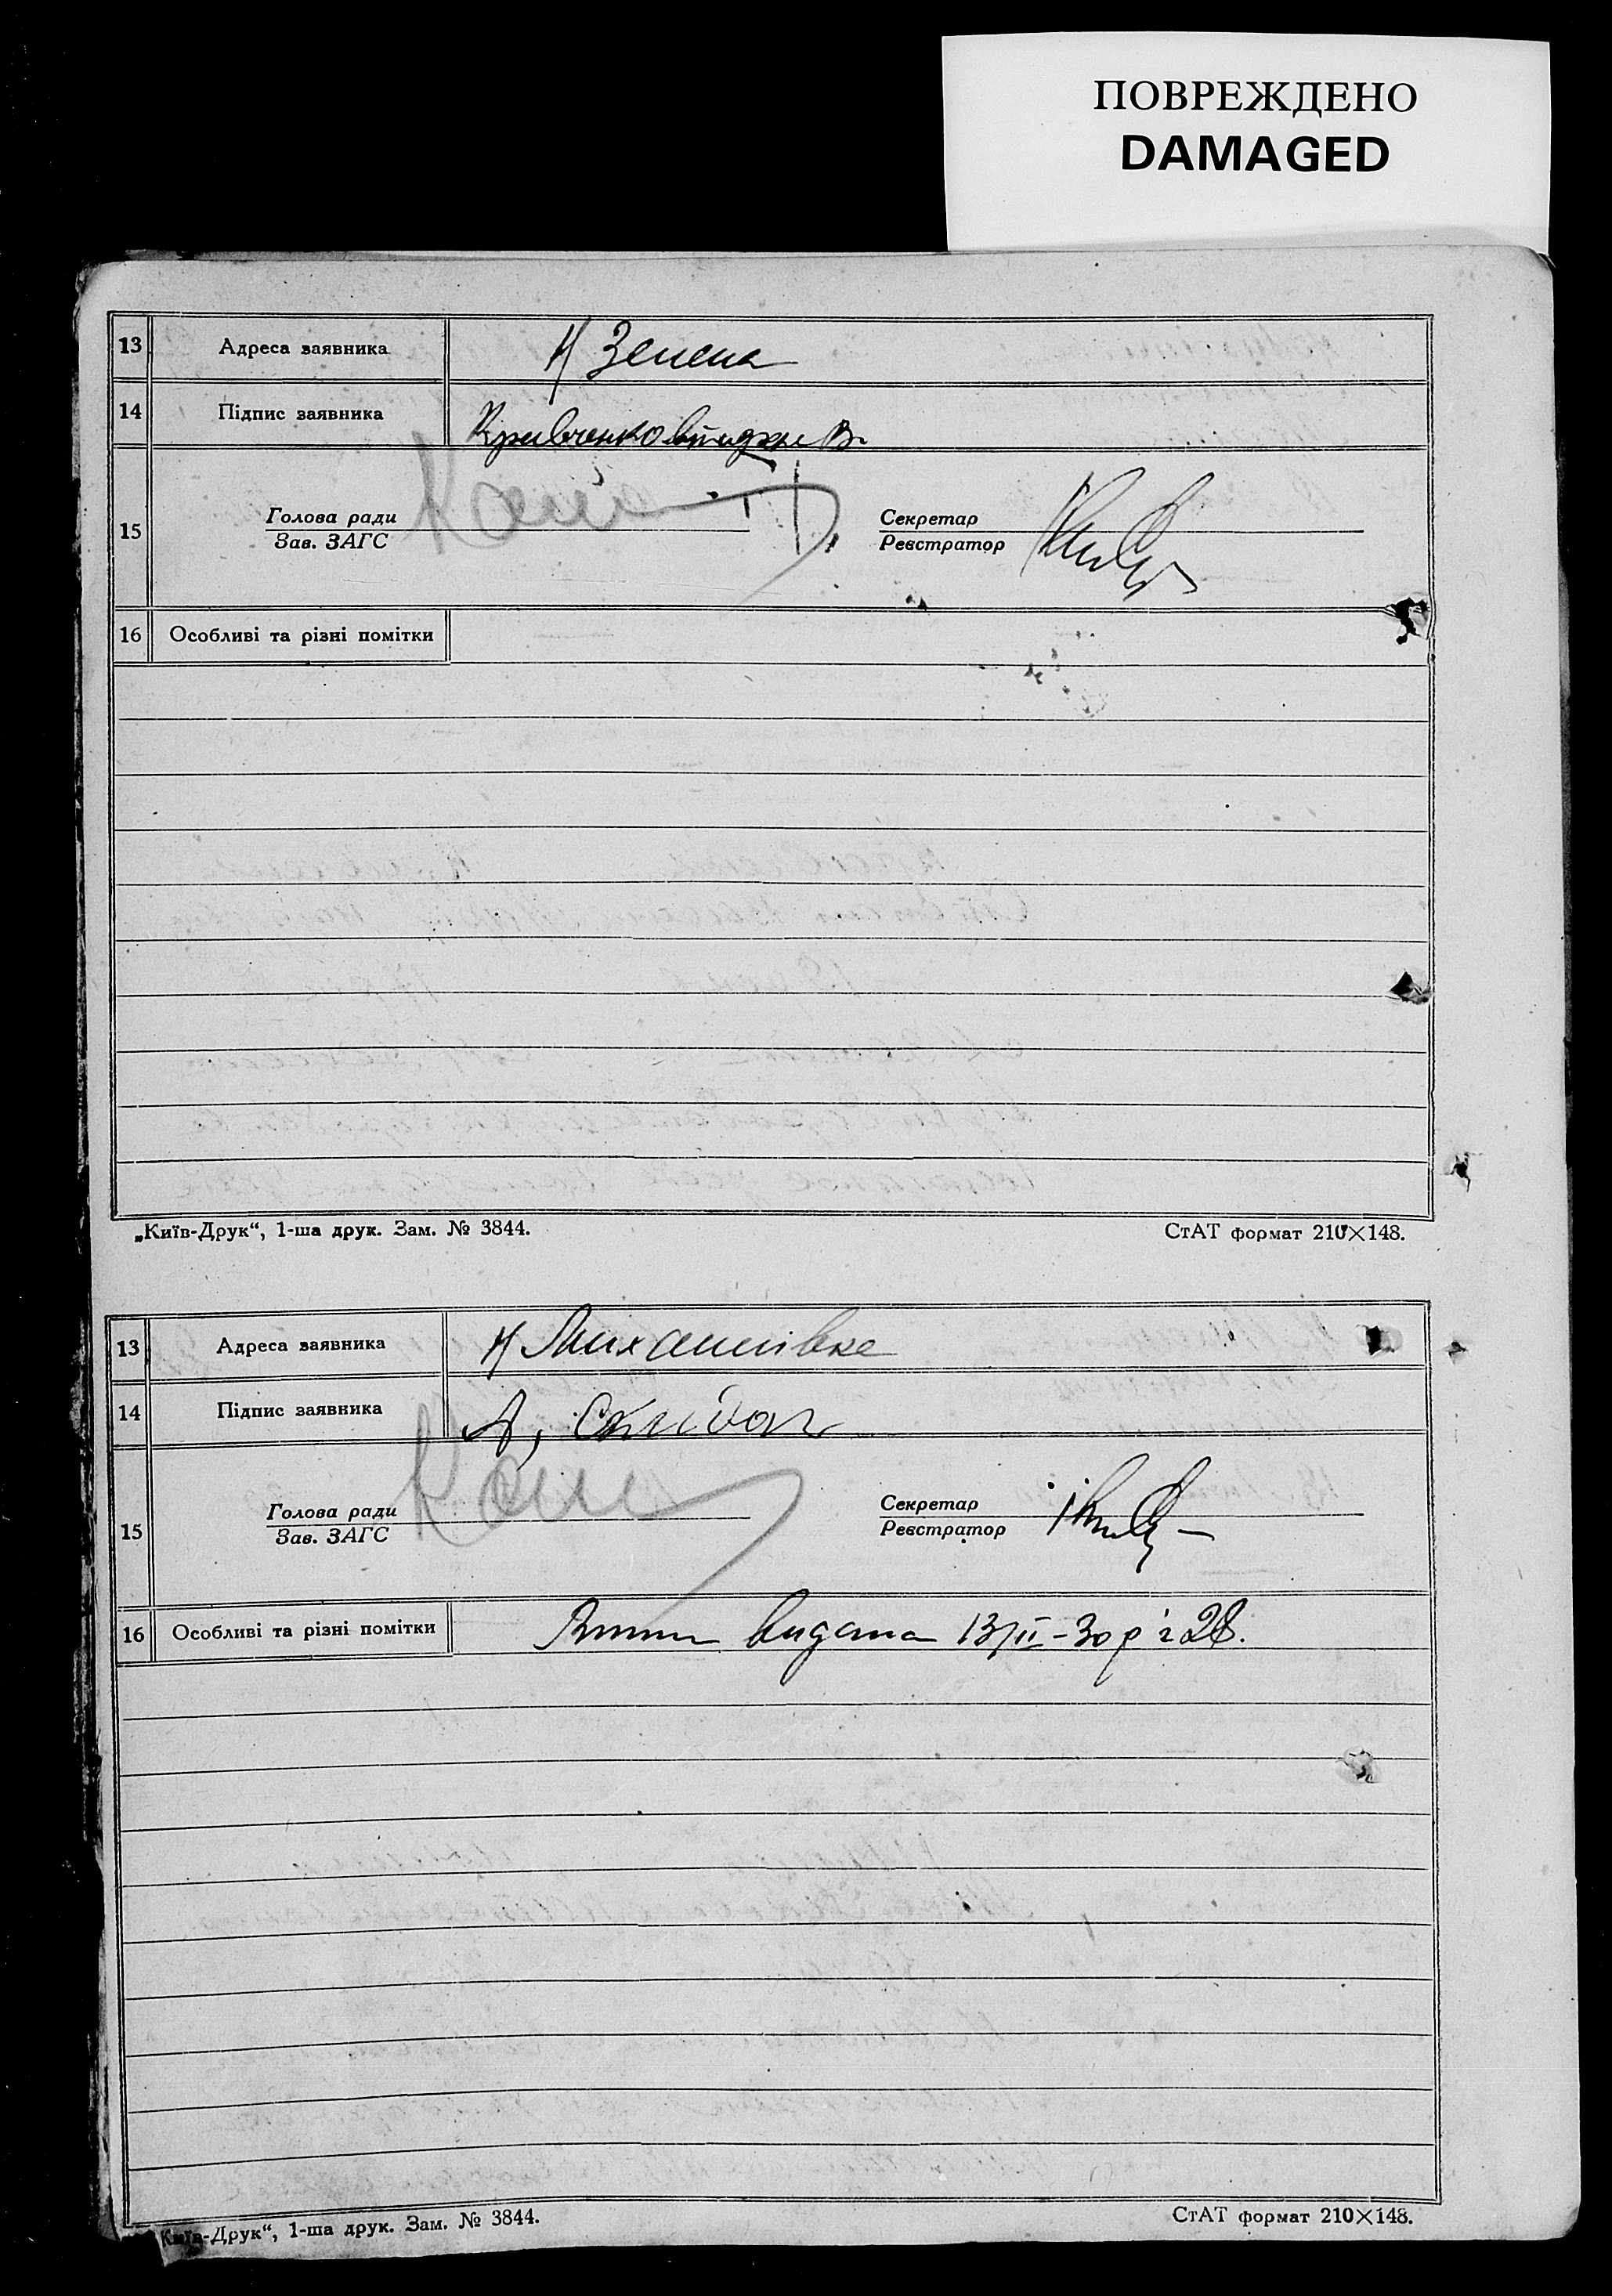 ПОВРЕЖДЕНО
DAMAGED
13 Адреса заявника Н Зелена
14 Підпис заявника Кривченко В.
Голова ради Секретар
15
Зав. ЗАГС Реєстратор
16 Особливі та різні помітки
„Київ-Друк“, 1-ша друк. Зам. № 3844. СтАТ формат 210×148.
13 Адреса заявника Н Михайлівка
14 Підпис заявника А,
Голова ради Секретар
15
Зав. ЗАГС Реєстратор
16 Особливі та різні помітки видана 13/II-30 р
Київ-Друк“, 1-ша друк. Зам. № 3844. СтАТ формат 210×148.